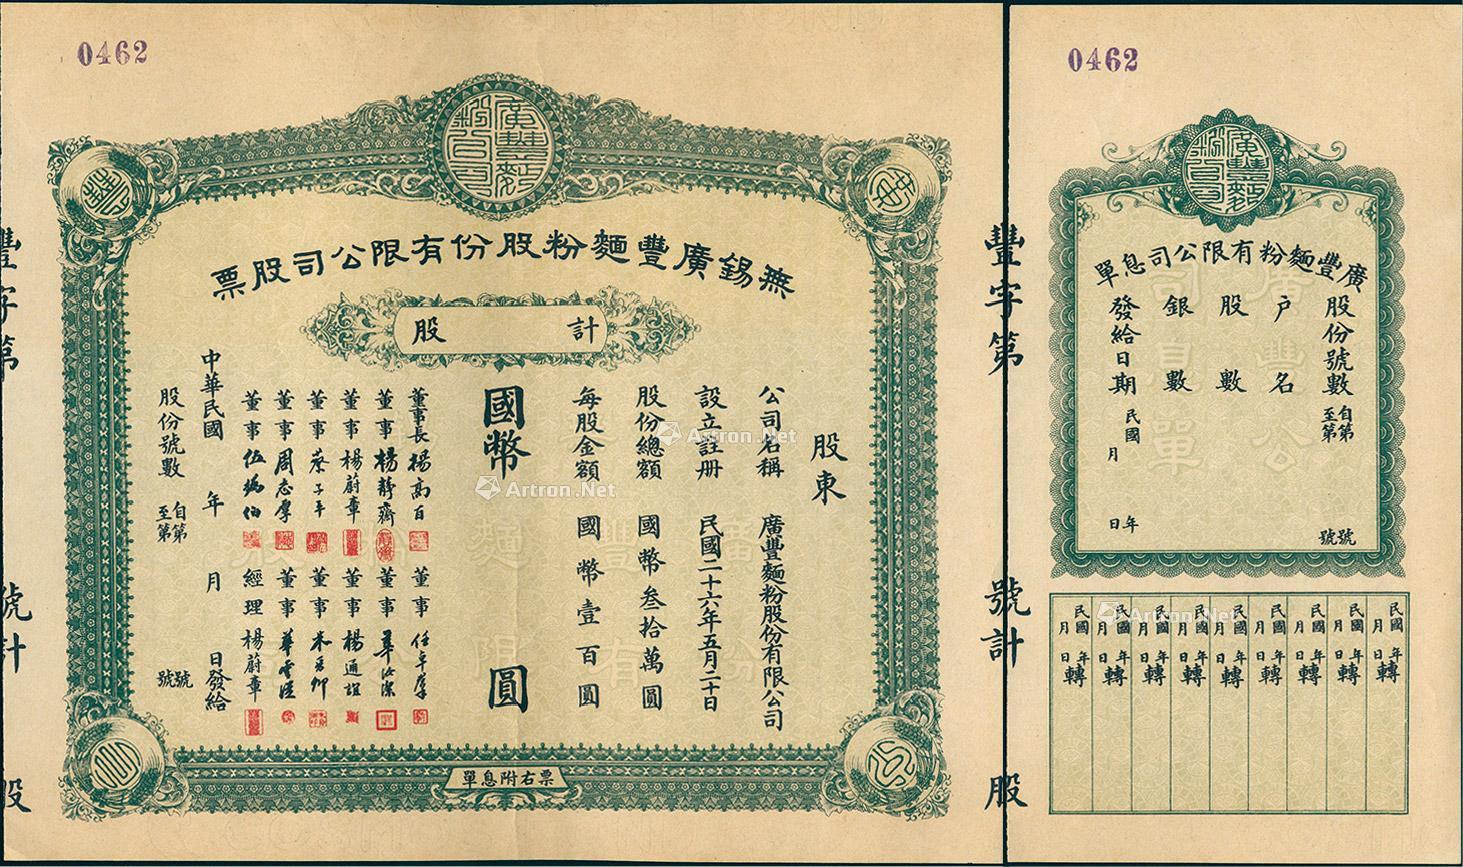 0462
無錫廣豐麵粉股份有限公司股票
計 股
股東
公司名稱 廣豐麵粉股份有限公司
設立註册 民國二十六年五月二十日
股份總額 國幣叁拾萬圓
每股金額 國幣壹百圓
國幣 圓
董事長 楊高百
董事 楊靜齋
董事 楊蔚章
董事 蔡子平
董事 周志摩
董事
董事
董事
董事 楊通誼
董事
董事
經理 楊蔚章
中華民國 年 月 日發給
股份號數 自第 號
至第 號
票右附息單
豐字第 號計 股
0462
廣豐麵粉有限公司息單
股份號數 自第 號
至第 號
戶名
股數
銀數
發給日期 民國 年
月 日
民國 年
月 日 轉
民國 年
月 日 轉
民國 年
月 日 轉
民國 年
月 日 轉
民國 年
月 日 轉
民國 年
月 日 轉
民國 年
月 日 轉
民國 年
月 日 轉
民國 年
月 日 轉
豐字第 號計 股
Artron.Net
Artron.Net
Artron.Net